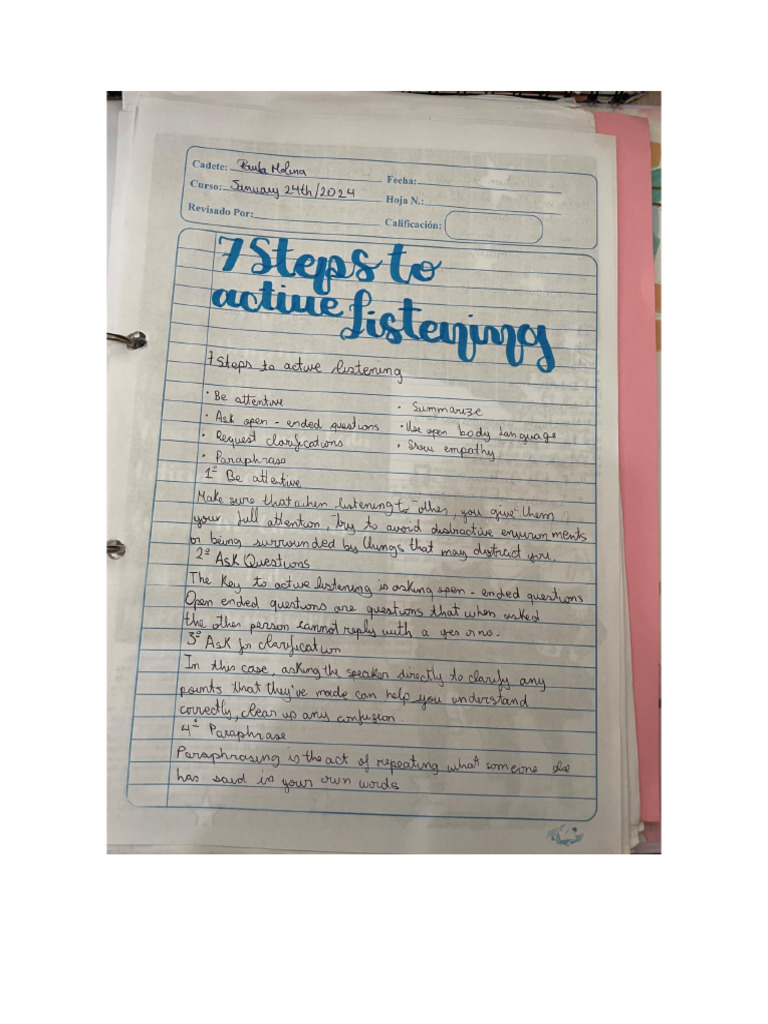 Cadete: Paula Molina
Fecha:
Curso: January 24th/2024
Hoja N.:
Revisado Por:
Calificación:
7 Steps to
active listening
7 Steps to active listening
• Be attentive
• Ask open-ended questions
• Request clarifications
• Paraphrase
• Summarize
• Use open body language
• Show empathy
1º Be attentive
Make sure that when listening to other, you give them
your full attention, try to avoid distractive environments
or being surrounded by things that may distract you.
2º Ask Questions
The key to active listening is asking open-ended questions
Open ended questions are questions that when asked
the other person cannot reply with a yes or no.
3º Ask for clarification
In this case, asking the speaker directly to clarify any
points that they've made can help you understand
correctly, clear up any confusion
4º Paraphrase
Paraphrasing is the act of repeating what someone else
has said in your own words